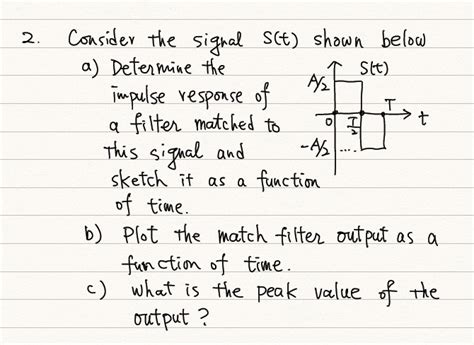 2. Consider the signal S(t) shown below
a) Determine the
impulse response of
a filter matched to
this signal and
sketch it as a function
of time.
S(t)
A/2
T
0
T/2
t
-A/2
....
b) Plot the match filter output as a
function of time.
c) What is the peak value of the
output?